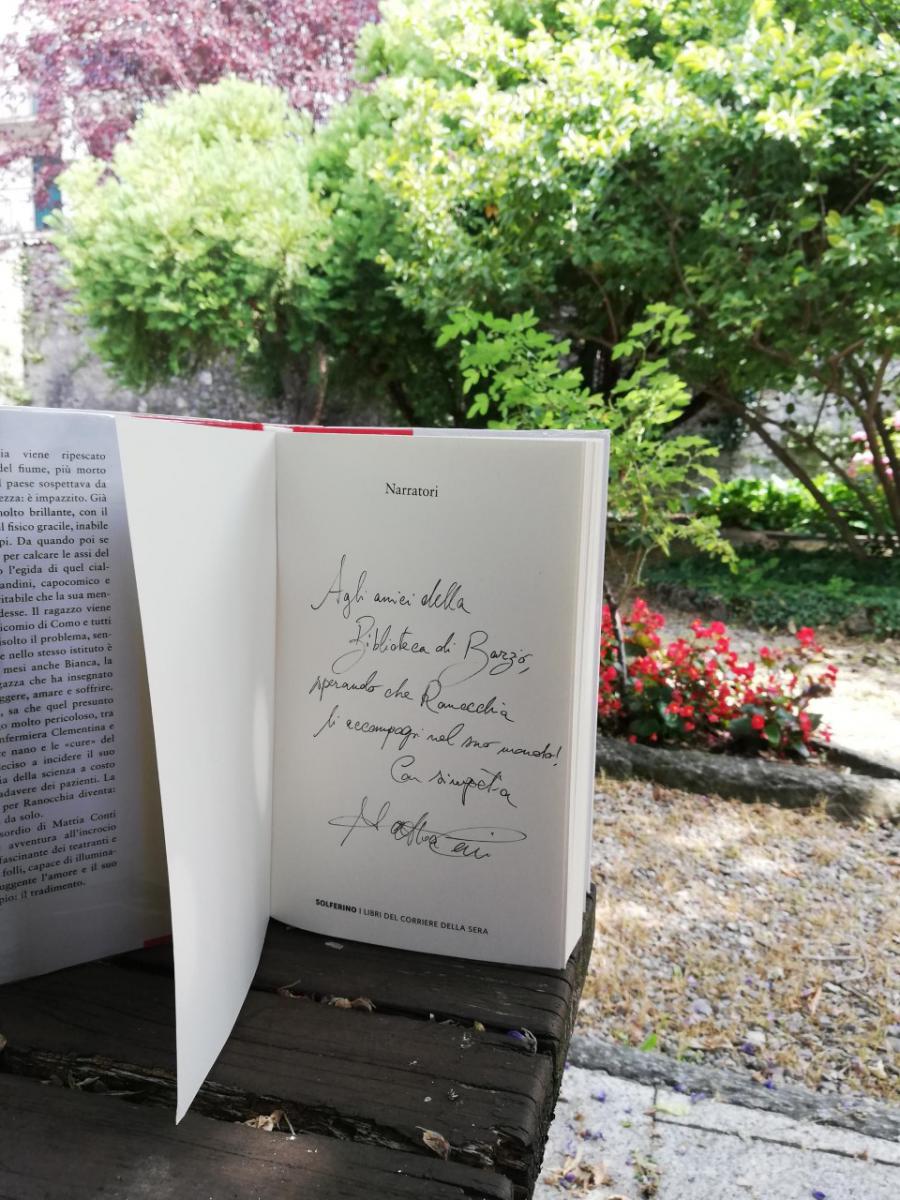 ia viene ripescato
del fiume, più morto
l paese sospettava da
ezza: è impazzito. Già
molto brillante, con il
l fisico gracile, inabile
pi. Da quando poi se
per calcare le assi del
o l'egida di quel cial-
andini, capocomico e
ritabile che la sua men-
desse. Il ragazzo viene
icomio di Como e tutti
isolto il problema, sen-
e nello stesso istituto è
mesi anche Bianca, la
gazza che ha insegnato
ggere, amare e soffrire.
, sa che quel presunto
go molto pericoloso, tra
nfermiera Clementina e
re nano e le «cure» del
eciso a incidere il suo
ia della scienza a costo
adavere dei pazienti. La
per Ranocchia diventa:
da solo.
sordio di Mattia Conti
avventura all'incrocio
fascinante dei teatranti e
folli, capace di illumina-
uggente l'amore e il suo
pio: il tradimento.
Narratori
Agli amici della
Biblioteca di Barzò,
sperando che Ranocchia
li accompagni nel suo mondo!
Con simpatia
Mattia Conti
SOLFERINO | LIBRI DEL CORRIERE DELLA SERA